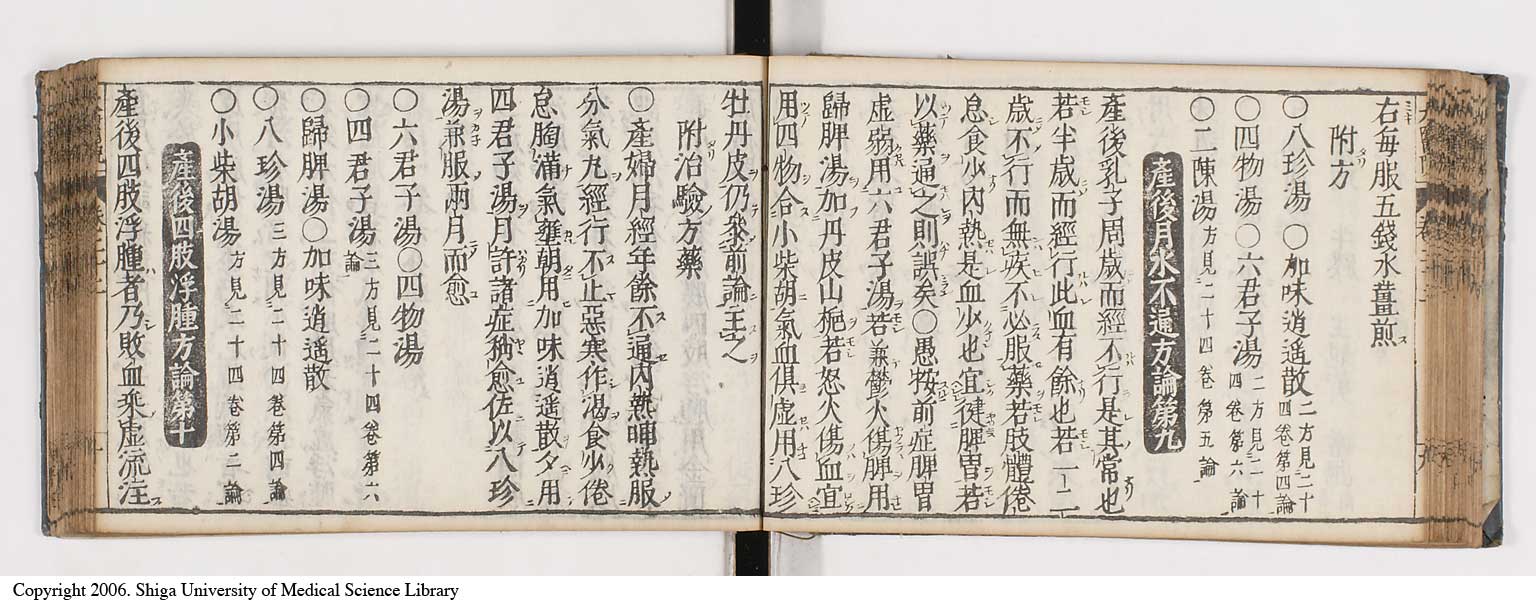 右每服五錢水薑煎
附方
○八珍湯○加味逍遥散二方見二十四卷第四論
○四物湯○六君子湯二方見二十四卷第六論
○二陳湯方見二十四卷第五論
產後月水不通方論第九
產後乳子周歲而經不行是其常也
若半歲而經行此血有餘也若一二
歲不行而無疾不必服藥若肢體倦
怠食少内熱是血少也宜健脾胃若
以藥通之則誤矣○愚按前症脾胃
虛弱用六君子湯若兼鬱火傷脾用
歸脾湯加丹皮山梔若怒火傷血宜
用四物合小柴胡氣血俱虛用八珍
牡丹皮仍參前論主之
附治驗方藥
○產婦月經年餘不通内熱晡熱服
分氣丸經行不止惡寒作渴食少倦
怠胸滿氣壅朝用加味逍遥散夕用
四君子湯月許諸症稍愈佐以八珍
湯兼服兩月而愈
○六君子湯○四物湯
○四君子湯三方見二十四卷第六論
○歸脾湯○加味逍遥散
○八珍湯三方見二十四卷第四論
○小柴胡湯方見二十四卷第二論
產後四肢浮腫方論第十
產後四肢浮腫者乃敗血乘虛流注
Copyright 2006. Shiga University of Medical Science Library